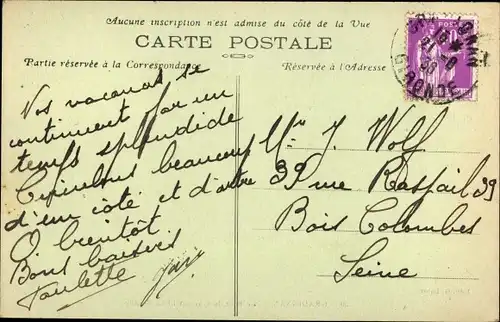 Aucune inscription n'est admise du côté de la Vue
CARTE POSTALE
Partie réservée à la Correspondance
Réservée à l'Adresse
Nos vacances se
continuent par un
temps splendide
beaucoup
d'un côté et d'autre
A bientôt
Bons baisers
Paulette
GIRONDE
Mr J. Wolf
39 rue Raspail 39
Bois Colombes
Seine